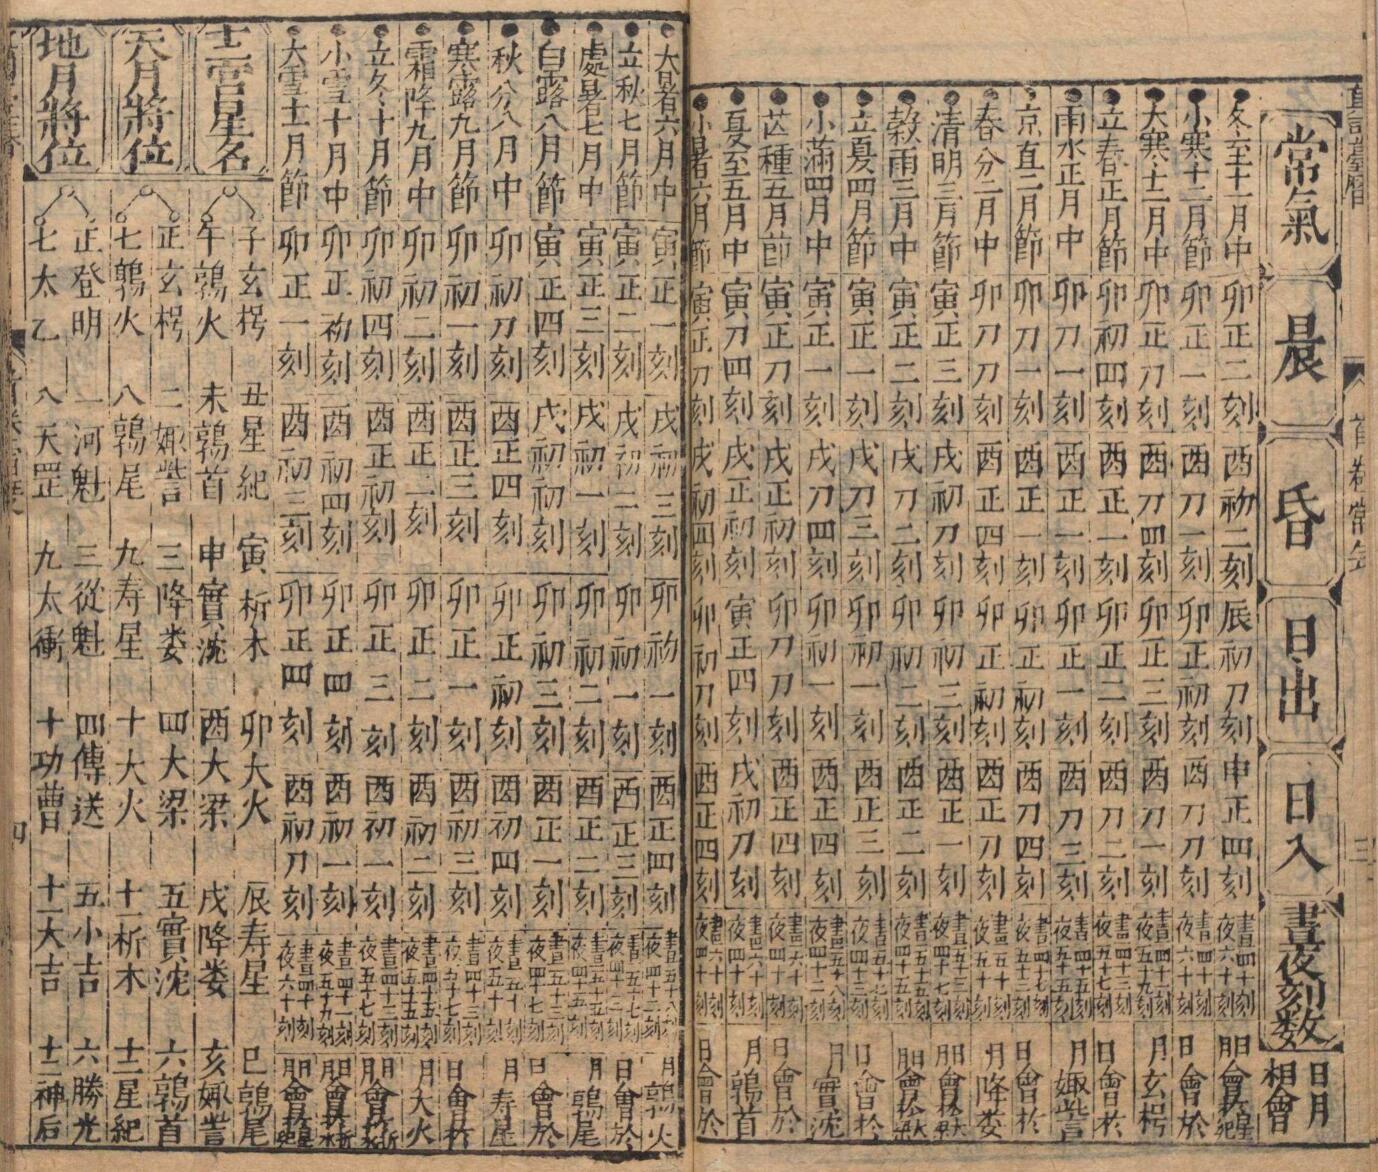 常氣 晨 昏 日出 日入 晝夜刻数 日月相會
冬至十一月中 卯正二刻 酉初二刻 辰初刀刻 申正四刻 晝四十刻 夜六十刻 日月會於星紀
小寒十二月節 卯正一刻 酉刀一刻 卯正初刻 酉刀刀刻 晝四十刻 夜六十刻 日會於
大寒十二月中 卯正刀刻 酉刀四刻 卯正三刻 酉刀一刻 晝四十一刻 夜五十九刻 月玄枵
立春正月節 卯初四刻 酉正一刻 卯正二刻 酉刀二刻 晝四十三刻 夜五十七刻 日會於
雨水正月中 卯刀一刻 酉正一刻 卯正一刻 酉刀三刻 晝四十五刻 夜五十五刻 月娵訾
京直二月節 卯刀一刻 酉正一刻 卯正初刻 酉刀四刻 晝四十七刻 夜五十三刻 日會於
春分二月中 卯刀刀刻 酉正四刻 卯正初刻 酉正刀刻 晝五十刻 夜五十刻 月降娄
清明三月節 寅正三刻 戌初刀刻 卯初三刻 酉正一刻 晝五十三刻 夜四十七刻 日月會於大
穀雨三月中 寅正二刻 戌刀二刻 卯初二刻 酉正二刻 晝五十五刻 夜四十五刻 日月會於
立夏四月節 寅正一刻 戌刀三刻 卯初一刻 酉正三刻 晝五十七刻 夜四十三刻 日會於
小滿四月中 寅正一刻 戌刀四刻 卯初一刻 酉正四刻 晝五十八刻 夜四十二刻 月實沈
芒種五月節 寅正刀刻 戌正初刻 卯刀刀刻 酉正四刻 晝六十刻 夜四十刻 日會於
夏至五月中 寅刀四刻 戌正初刻 寅正四刻 戌初刀刻 晝六十刻 夜四十刻 月鶉首
小暑六月節 寅正刀刻 戌初四刻 卯初刀刻 酉正四刻 晝六十刻 夜四十刻 日會於
大暑六月中 寅正一刻 戌初三刻 卯初一刻 酉正四刻 晝五十八刻 夜四十二刻 月鶉火
立秋七月節 寅正二刻 戌初二刻 卯初一刻 酉正三刻 晝五十七刻 夜四十三刻 日會於
處暑七月中 寅正三刻 戌初一刻 卯初二刻 酉正二刻 晝五十五刻 夜四十五刻 月鶉尾
白露八月節 寅正四刻 戌初初刻 卯初三刻 酉正一刻 晝五十三刻 夜四十七刻 日會於
秋分八月中 卯初刀刻 酉正四刻 卯正初刻 酉初四刻 晝五十刻 夜五十刻 月寿星
寒露九月節 卯初一刻 酉正三刻 卯正一刻 酉初三刻 晝四十七刻 夜五十三刻 日會於
霜降九月中 卯初二刻 酉正二刻 卯正二刻 酉初二刻 晝四十五刻 夜五十五刻 月大火
立冬十月節 卯初四刻 酉正初刻 卯正三刻 酉初一刻 晝四十三刻 夜五十七刻 日月會於析
小雪十月中 卯正初刻 酉初四刻 卯正四刻 酉初一刻 晝四十一刻 夜五十九刻 日月會於析木
大雪十一月節 卯正一刻 酉初三刻 卯正四刻 酉初刀刻 晝四十刻 夜六十刻 日月會於星紀
十二宮星名
子玄枵 丑星紀 寅析木 卯大火 辰寿星 巳鶉尾
午鶉火 未鶉首 申實沈 酉大梁 戌降娄 亥娵訾
天月將位
正玄枵 二娵訾 三降娄 四大梁 五實沈 六鶉首
七鶉火 八鶉尾 九寿星 十大火 十一析木 十二星紀
地月將位
正登明 二河魁 三從魁 四傳送 五小吉 六勝光
七太乙 八天罡 九太衝 十功曹 十一大吉 十二神后